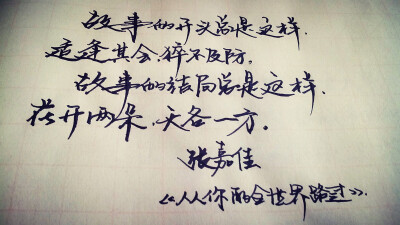 故事的开头总是这样，
适逢其会，猝不及防。
故事的结局总是这样，
花开两朵，天各一方。
张嘉佳
《从你的全世界路过》